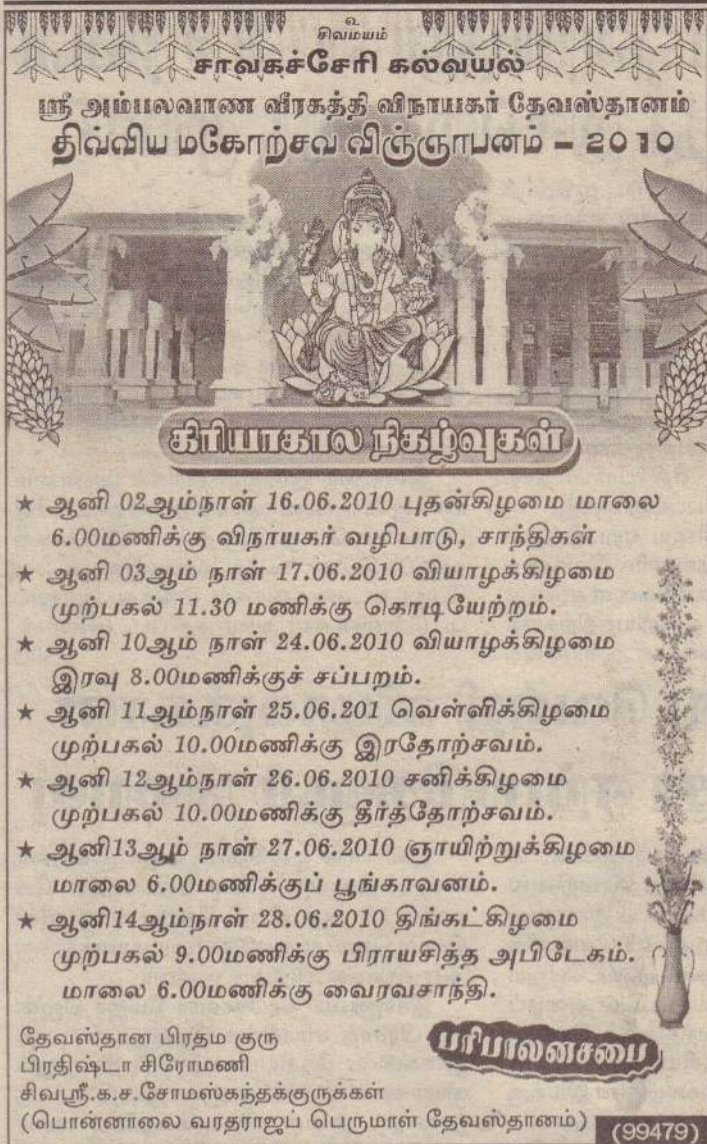 உ
சிவமயம்
சாவகச்சேரி கல்வயல்
ஸ்ரீ அம்பலவாண வீரகத்தி விநாயகர் தேவஸ்தானம்
திவ்விய மகோற்சவ விஞ்ஞாபனம் – 2010
கிரியாகால நிகழ்வுகள்
★ ஆனி 02ஆம்நாள் 16.06.2010 புதன்கிழமை மாலை
6.00மணிக்கு விநாயகர் வழிபாடு, சாந்திகள்
★ ஆனி 03ஆம் நாள் 17.06.2010 வியாழக்கிழமை
முற்பகல் 11.30 மணிக்கு கொடியேற்றம்.
★ ஆனி 10ஆம் நாள் 24.06.2010 வியாழக்கிழமை
இரவு 8.00மணிக்குச் சப்பறம்.
★ ஆனி 11ஆம்நாள் 25.06.201 வெள்ளிக்கிழமை
முற்பகல் 10.00மணிக்கு இரதோற்சவம்.
★ ஆனி 12ஆம்நாள் 26.06.2010 சனிக்கிழமை
முற்பகல் 10.00மணிக்கு தீர்த்தோற்சவம்.
★ ஆனி13ஆம் நாள் 27.06.2010 ஞாயிற்றுக்கிழமை
மாலை 6.00மணிக்குப் பூங்காவனம்.
★ ஆனி14ஆம்நாள் 28.06.2010 திங்கட்கிழமை
முற்பகல் 9.00மணிக்கு பிராயசித்த அபிடேகம்.
மாலை 6.00மணிக்கு வைரவசாந்தி.
தேவஸ்தான பிரதம குரு
பிரதிஷ்டா சிரோமணி
சிவஸ்ரீ.க.ச.சோமஸ்கந்தக்குருக்கள்
(பொன்னாலை வரதராஜப் பெருமாள் தேவஸ்தானம்)
பரிபாலனசபை
(99479)